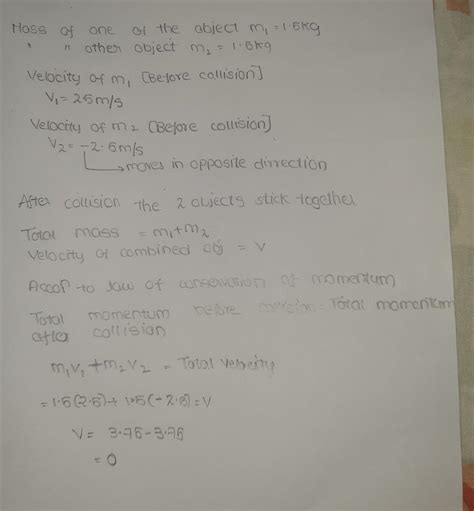 Mass of one of the object m₁ = 1.5kg
" " other object m₂ = 1.5kg
Velocity of m₁ [Before collision]
V₁ = 25m/s
Velocity of m₂ [Before collision]
V₂ = -2.5m/s
→ moves in opposite dirrection
After collision the 2 objects stick together
Total mass = m₁+m₂
Velocity of combined obj = V
Accof to law of conservation of momentum
Total momentum before = Total momentum
after collision
m₁v₁+m₂v₂ = Total velocity
= 1.5(2.5)+ 1.5(-2.5)=V
V= 3.75-3.75
= 0